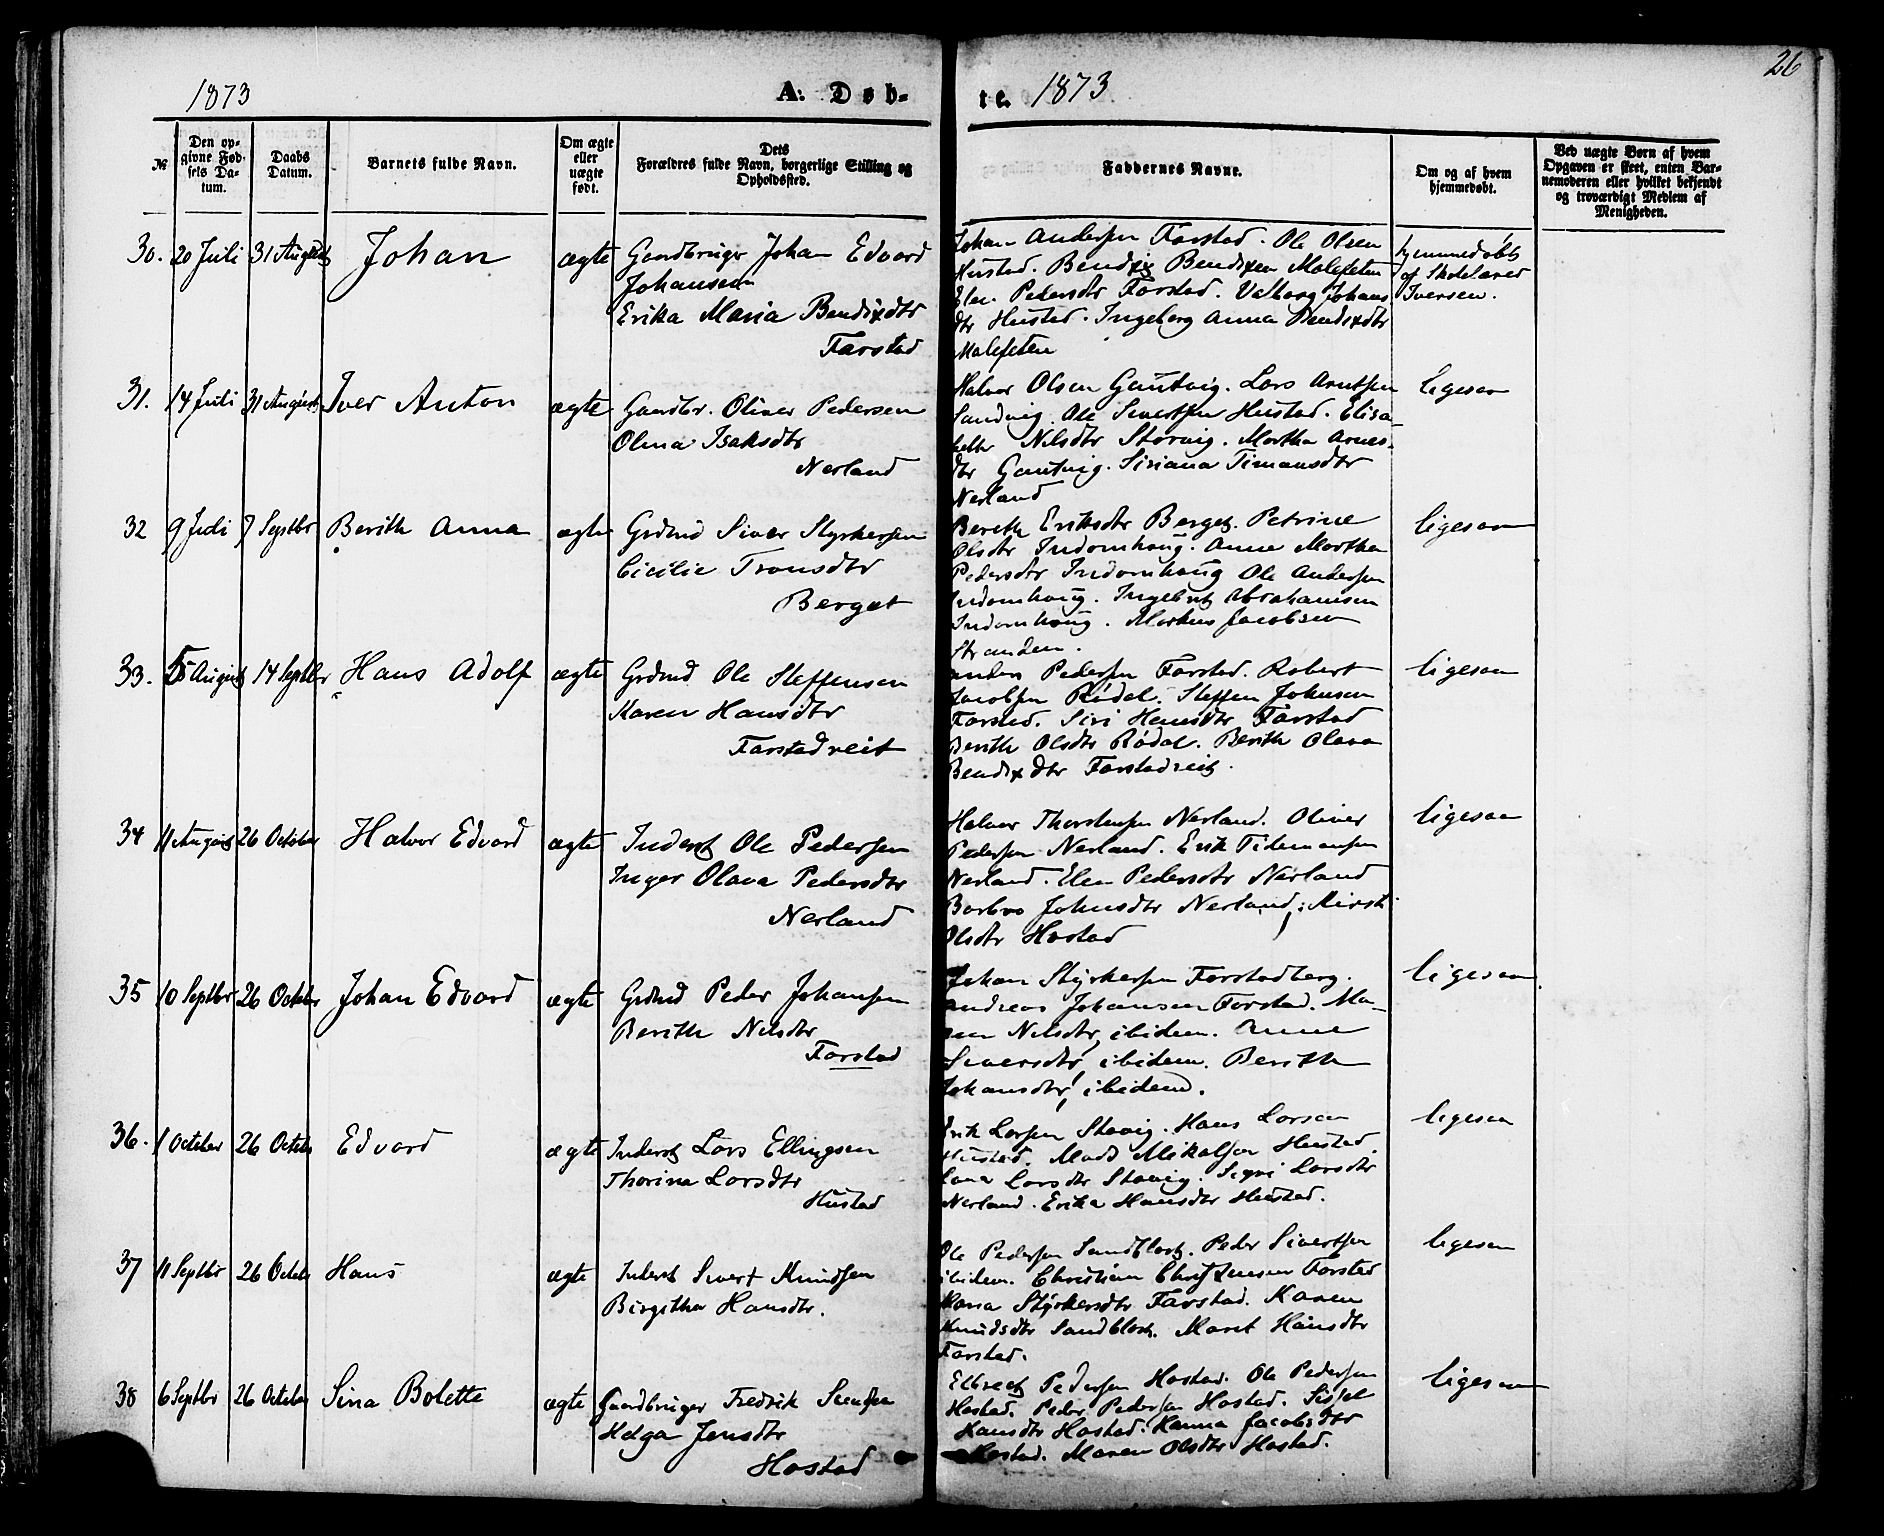 26
1873
A. Døb-
te. 1873
№
Den op-
givne Fød-
sels Da-
tum.
Daabs
Datum.
Barnets fulde Navn.
Om ægte
eller
uægte
født.
Dets
Forældres fulde Navn, borgerlige Stilling og
Opholdssted.
Faddernes Navne.
Om og af hvem
hjemmedøbt.
Ved uægte Børn af hvem
Opgaven er skeet, enten Bar-
nemoderen eller hvilket bekjendt
og troværdigt Medlem af
Menigheden.
30. 20 Juli 31 August Johan ægte Gaardbruger Johan Edvard
Johansen
Erika Maria Bendixdtr
Farstad
Johan Andersen Farstad. Ole Olsen
Hustad. Bendix Bendixen Malefeten
Elen Pedersdtr Farstad. Valborg Johans
dtr Hustad. Ingeborg Anna Bendixdtr
Malefeten
hjemmedøbt
af Skolelærer
Iversen.
31. 14 Juli 31 August Iver Anton ægte Gaardbr. Oliver Pedersen
Olina Isaksdtr
Nerland
Halvor Olsen Gautvig. Lars Arntsen
Sandvig. Ole Sivertsen Hustad. Elisa-
beth Nilsdtr Storvig. Martha Arnes-
dtr Gautvig. Siriana Timansdtr
Nerland
ligesaa
32 9 Juli 7 Septbr Berith Anna ægte Grdmd Siver Styrkersen
Cicilie Tronsdtr
Berget
Berith Eriksdtr Berget. Petrine
Olsdtr Indomhaug. Anne Martha
Pedersdtr Indomhaug Ole Andersen
Indomhaug. Ingebret Abrahamsen
Indomhaug. Markus Jacobsen
Stranden.
ligesaa
33. 5 August 14 Septbr Hans Adolf ægte Grdmd Ole Steffensen
Karen Hansdtr
Farstadreit
Anders Pedersen Farstad. Robert
Jacobsen Rødal. Steffen Johnsen
Farstad. Siri Hansdtr Farstad
Berith Olsdtr Rødal. Berith Olava
Bendixdtr Farstadreit.
ligesaa
34 11 August 26 October Halvor Edvard ægte Inderst Ole Pedersen
Inger Olava Pedersdtr
Nerland
Halvor Thorstensen Nerland. Oliver
Pedersen Nerland. Erik Tidemansen
Nerland. Elen Pedersdtr Nerland
Barbro Johnsdtr Nerland; Kirsti
Olsdtr Hostad
ligesaa
35 10 Septbr 26 Octobr Johan Edvard ægte Grdmd Peder Johansen
Berith Nilsdtr
Farstad
Johan Styrkersen Farstadberg.
Andreas Johansen Farstad. Ma-
ren Nilsdtr, ibidem. Anne
Siversdtr, ibidem. Berith
Johansdtr, ibidem.
ligesaa
36. 1 October 26 Octob Edvard ægte Inderst Lars Ellingsen
Thorina Larsdtr
Hustad
Erik Larsen Stavig. Hans Larsen
Hustad. Mads Mikalsen Hustad.
Lava Larsdtr Stavig. Sigri Larsdtr
Nerland. Erika Hansdtr Hustad.
ligesaa
37 11 Septbr 26 Octob Hans ægte Inderst Sivert Knudsen
Birgitha Hansdtr.
Ole Pedersen Sandblost. Peder Sivertsen
ibidem. Christian Christensen Farstad
Maria Styrkersdtr Farstad. Karen
Knudsdtr Sandblost. Maret Hansdtr
Farstad.
ligesaa
38 6 Septbr 26 October Sina Bolette ægte Gaardbruger Fredrik Svendsen
Helga Jensdtr
Hostad
Elbregt Pedersen Hostad. Ole Pedersen
Hostad. Peder Pedersen Hostad. Sissel
Hansdtr Hostad. Hanna Jacobsdtr
Hostad. Maren Olsdtr Hostad.
ligesaa